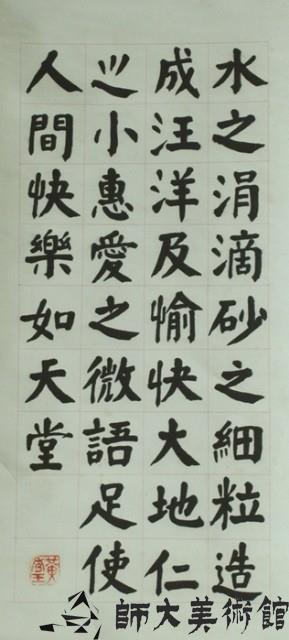 水之涓滴砂之細粒造
成汪洋及愉快大地仁
之小惠愛之微語足使
人間快樂如天堂
師大美術館